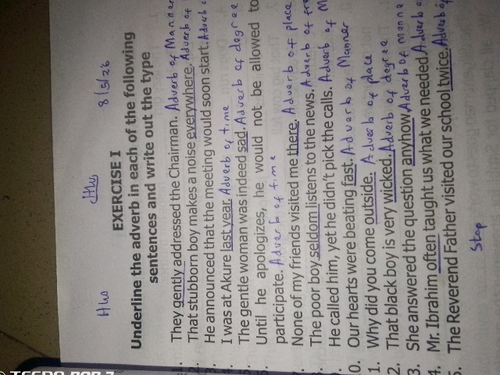 H/w 8/5/26
EXERCISE I
Underline the adverb in each of the following
sentences and write out the type
They gently addressed the Chairman. Adverb of Manner
That stubborn boy makes a noise everywhere. Adverb of
He announced that the meeting would soon start. Adverb o
I was at Akure last year. Adverb of time
The gentle woman was indeed sad. Adverb of degree
Until he apologizes, he would not be allowed to
participate. Adverb of time
None of my friends visited me there. Adverb of place
The poor boy seldom listens to the news. Adverb of fre
He called him, yet he didn't pick the calls. Adverb of M
0. Our hearts were beating fast. Adverb of Manner
1. Why did you come outside. Adverb of place
2. That black boy is very wicked. Adverb of degree
3. She answered the question anyhow. Adverb of manne
4. Mr. Ibrahim often taught us what we needed. Adverb o
5. The Reverend Father visited our school twice. Adverb of
Stop